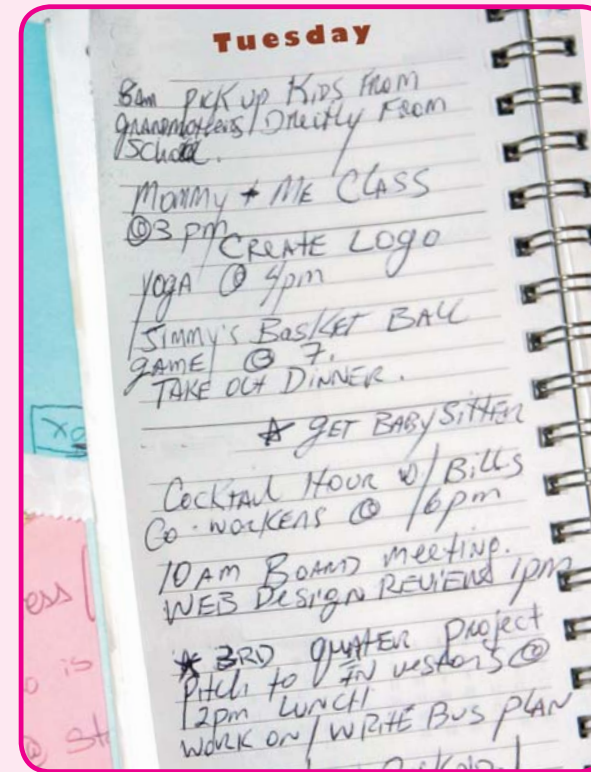 Tuesday
8am PICK UP KIDS FROM
grandmothers/Directly From
School.
Mommy + ME CLASS
@3 pm/CREATE LOGO
YOGA @ 4pm
JIMMY'S BASKET BALL
gAME/ @ 7.
TAKE OUT DINNER.
★ GET BABY SITTER
COCKTAIL HOUR W/ BILLS
CO-WORKERS @ 6pm
10 AM BOARD meeting.
WEB DESIGN REVIEWS 1pm
★ 3RD QUATER Project
Pitch to IN vestors @
12pm LUNCH
WORK ON/WRITE BUS PLAN
xo
ess
is
@ st